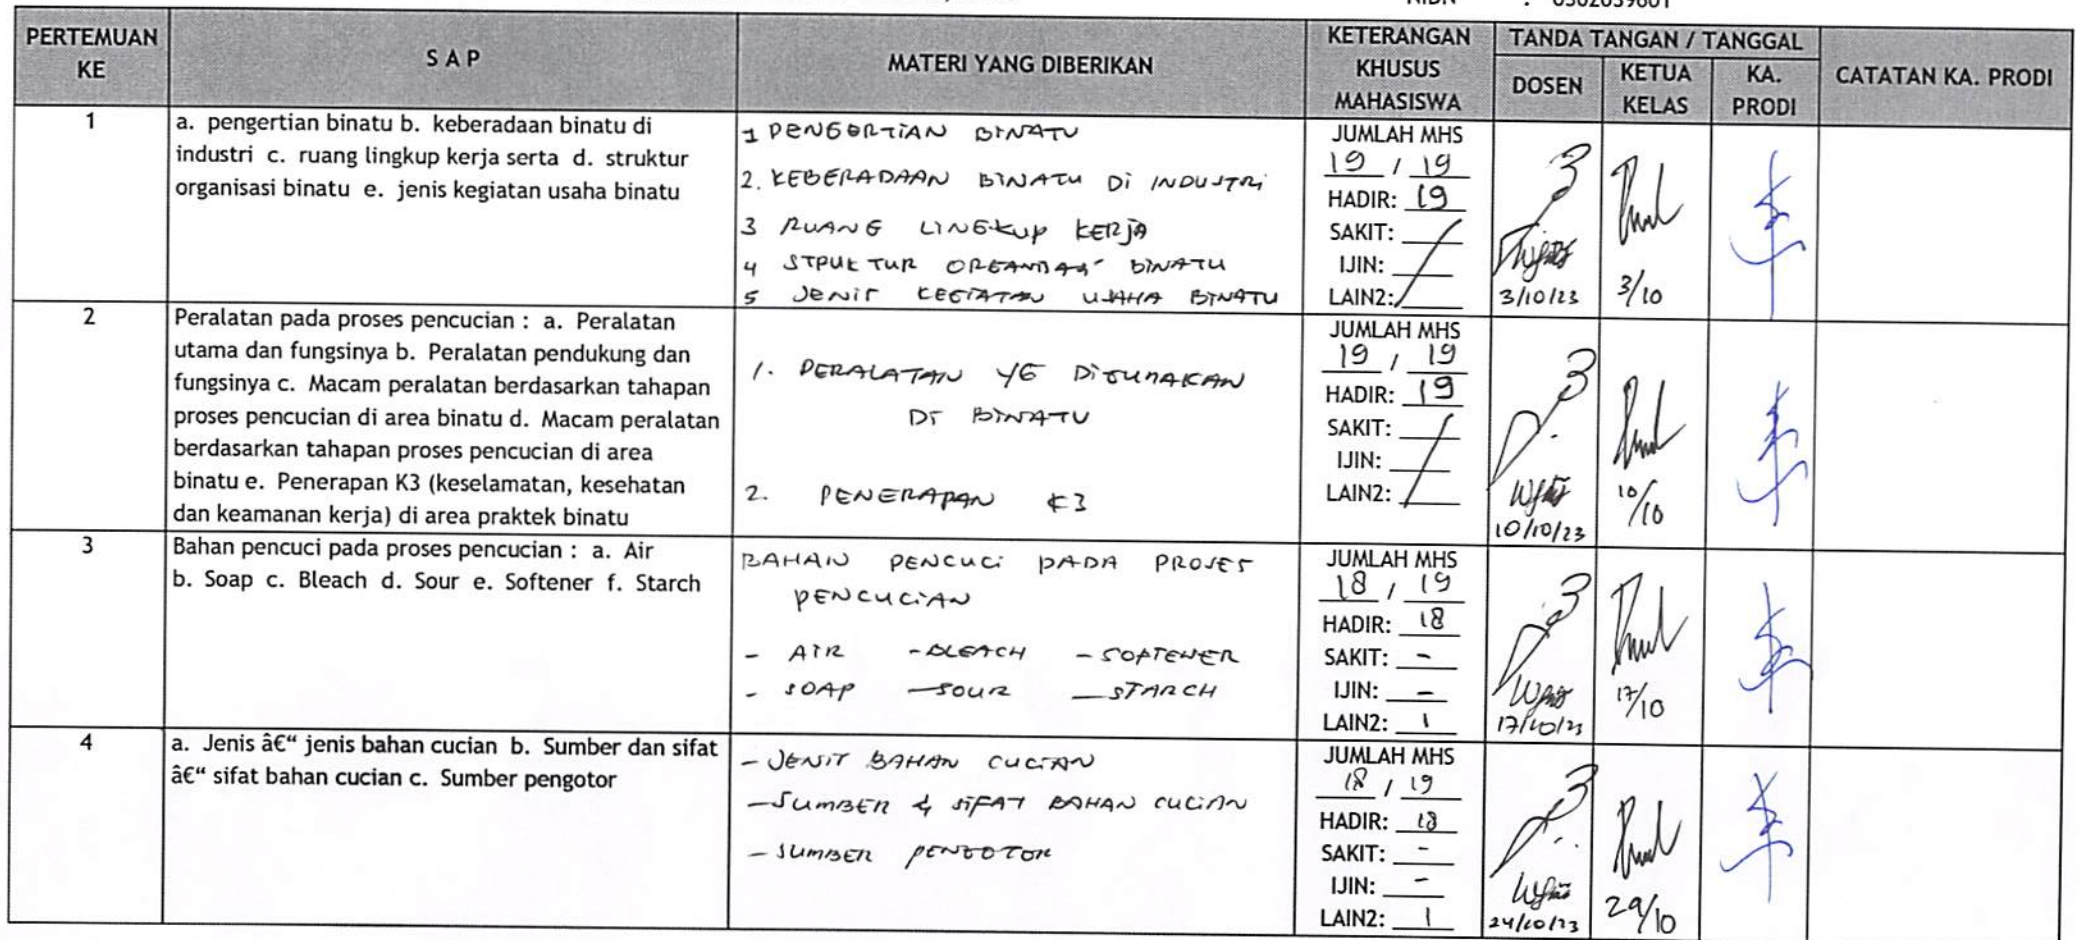 NIDN : 0302039601
PERTEMUAN KE
S A P
MATERI YANG DIBERIKAN
KETERANGAN KHUSUS MAHASISWA
TANDA TANGAN / TANGGAL
DOSEN
KETUA KELAS
KA. PRODI
CATATAN KA. PRODI
1
a. pengertian binatu b. keberadaan binatu di
industri c. ruang lingkup kerja serta d. struktur
organisasi binatu e. jenis kegiatan usaha binatu
1 PENGERTIAN BINATU
2. KEBERADAAN BINATU DI INDUSTRI
3 RUANG LINGKUP KERJA
4 STRUKTUR ORGANISASI BINATU
5 JENIS KEGIATAN USAHA BINATU
JUMLAH MHS
19 / 19
HADIR: 19
SAKIT:
IJIN:
LAIN2:
3/10/23
3/10
2
Peralatan pada proses pencucian : a. Peralatan
utama dan fungsinya b. Peralatan pendukung dan
fungsinya c. Macam peralatan berdasarkan tahapan
proses pencucian di area binatu d. Macam peralatan
berdasarkan tahapan proses pencucian di area
binatu e. Penerapan K3 (keselamatan, kesehatan
dan keamanan kerja) di area praktek binatu
1. PERALATAN YG DIGUNAKAN
DI BINATU
2. PENERAPAN K3
JUMLAH MHS
19 / 19
HADIR: 19
SAKIT:
IJIN:
LAIN2:
10/10/23
10/10
3
Bahan pencuci pada proses pencucian : a. Air
b. Soap c. Bleach d. Sour e. Softener f. Starch
BAHAN PENCUCI PADA PROSES
PENCUCIAN
- AIR - BLEACH - SOFTENER
- SOAP - SOUR - STARCH
JUMLAH MHS
18 / 19
HADIR: 18
SAKIT: -
IJIN: -
LAIN2: 1
17/10/23
17/10
4
a. Jenis â€“ jenis bahan cucian b. Sumber dan sifat
â€“ sifat bahan cucian c. Sumber pengotor
- JENIS BAHAN CUCIAN
- SUMBER & SIFAT BAHAN CUCIAN
- SUMBER PENGOTOR
JUMLAH MHS
18 / 19
HADIR: 18
SAKIT: -
IJIN: -
LAIN2: 1
24/10/23
29/10